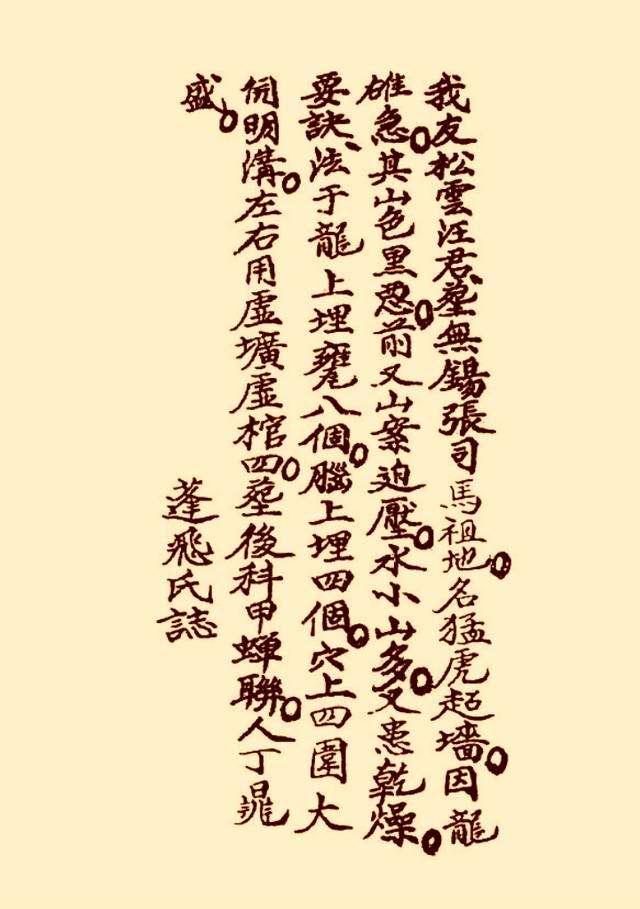 我友松雲汪君、塟無錫張司馬祖地。名猛虎起墻。因龍
雄急。其山色黑惡。前又山案迫壓。水小山多。又患乾燥。
要訣、法于龍上埋甕八個。腦上埋四個。穴上四圍大
開明溝。左右用虛壙虛棺四。塟後科甲蟬聯。人丁鼎
盛。
蓬飛氏誌